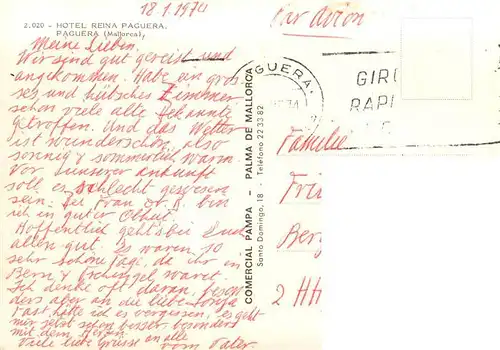 18.1.1974
2.020 - HOTEL REINA PAGUERA.
PAGUERA (Mallorca).
Meine Lieben.
Wir sind gut gereist und
angekommen. Habe ein gros-
ses und hübsches Zimmer
schon viele alte Bekannte
getroffen. Und das Wetter
ist wunderschön, also
sonnig & sommerlich warm
vor unserer Ankunft
soll es schlecht gewesen
sein. Bei Frau Dr. K. bin
ich in guter Obhut.
Hoffentlich geht's bei Euch
allen gut. Es waren so
sehr schöne Tage, da ihr in
Bern & waret.
Ich denke oft daran, beson
ders aber an die liebe Sonja
Fast hätte ich es vergessen, es geht
mir jetzt schon besser besonders
mit dem Herzen.
Viele liebe Grüsse an alle
vom Vater.
COMERCIAL PAMPA - PALMA DE MALLORCA
Santo Domingo, 18 - Teléfono 22 33 82
Par Avion
GUERA.
GIR
RAPI
Familie
Fri
Ber
2 HH